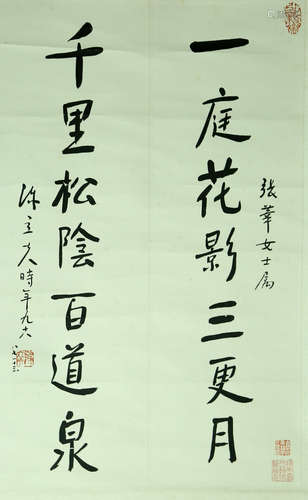 一庭花影三更月
張華女士屬
千里松陰百道泉
陳立夫時年九六